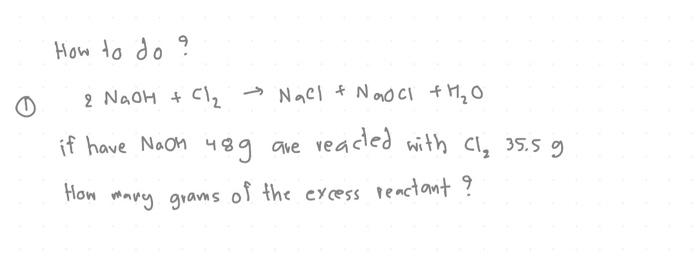 How to do ?
① 2 NaOH + Cl₂ → NaCl + NaOCl + H₂O
if have NaOH 48g are reacted with Cl₂ 35.5 g
How many grams of the excess reactant ?